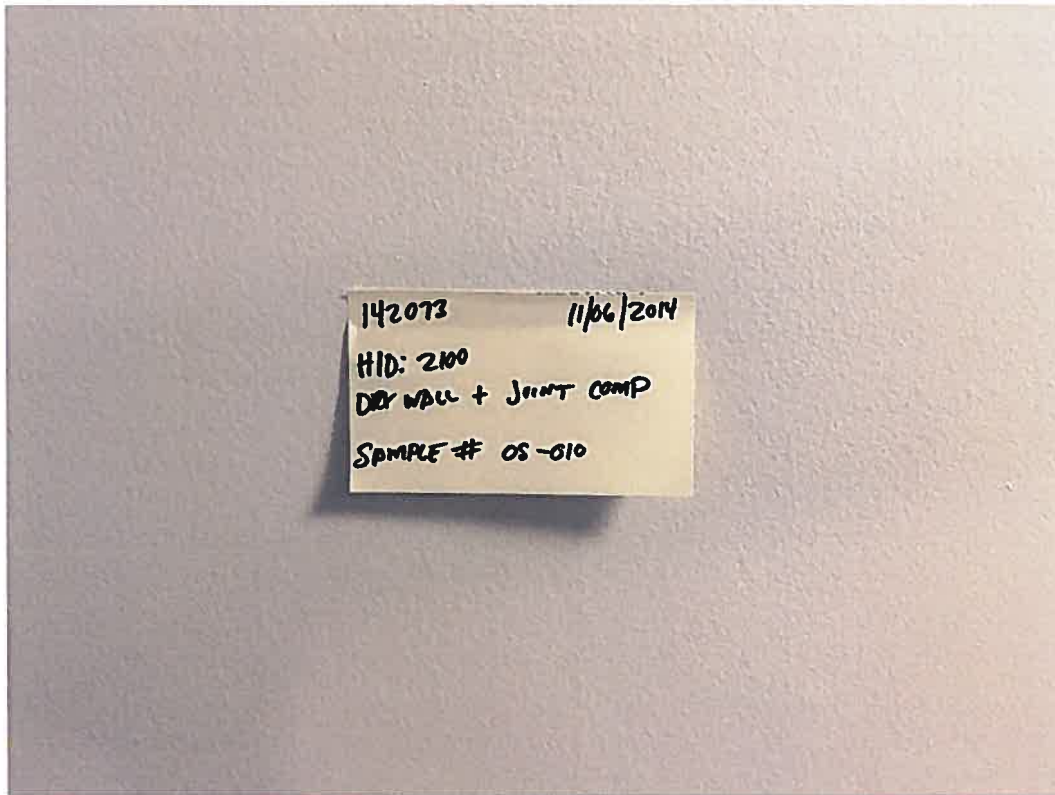 142073 11/06/2014
HID: 2100
DRY WALL + JOINT COMP
SAMPLE # OS-010